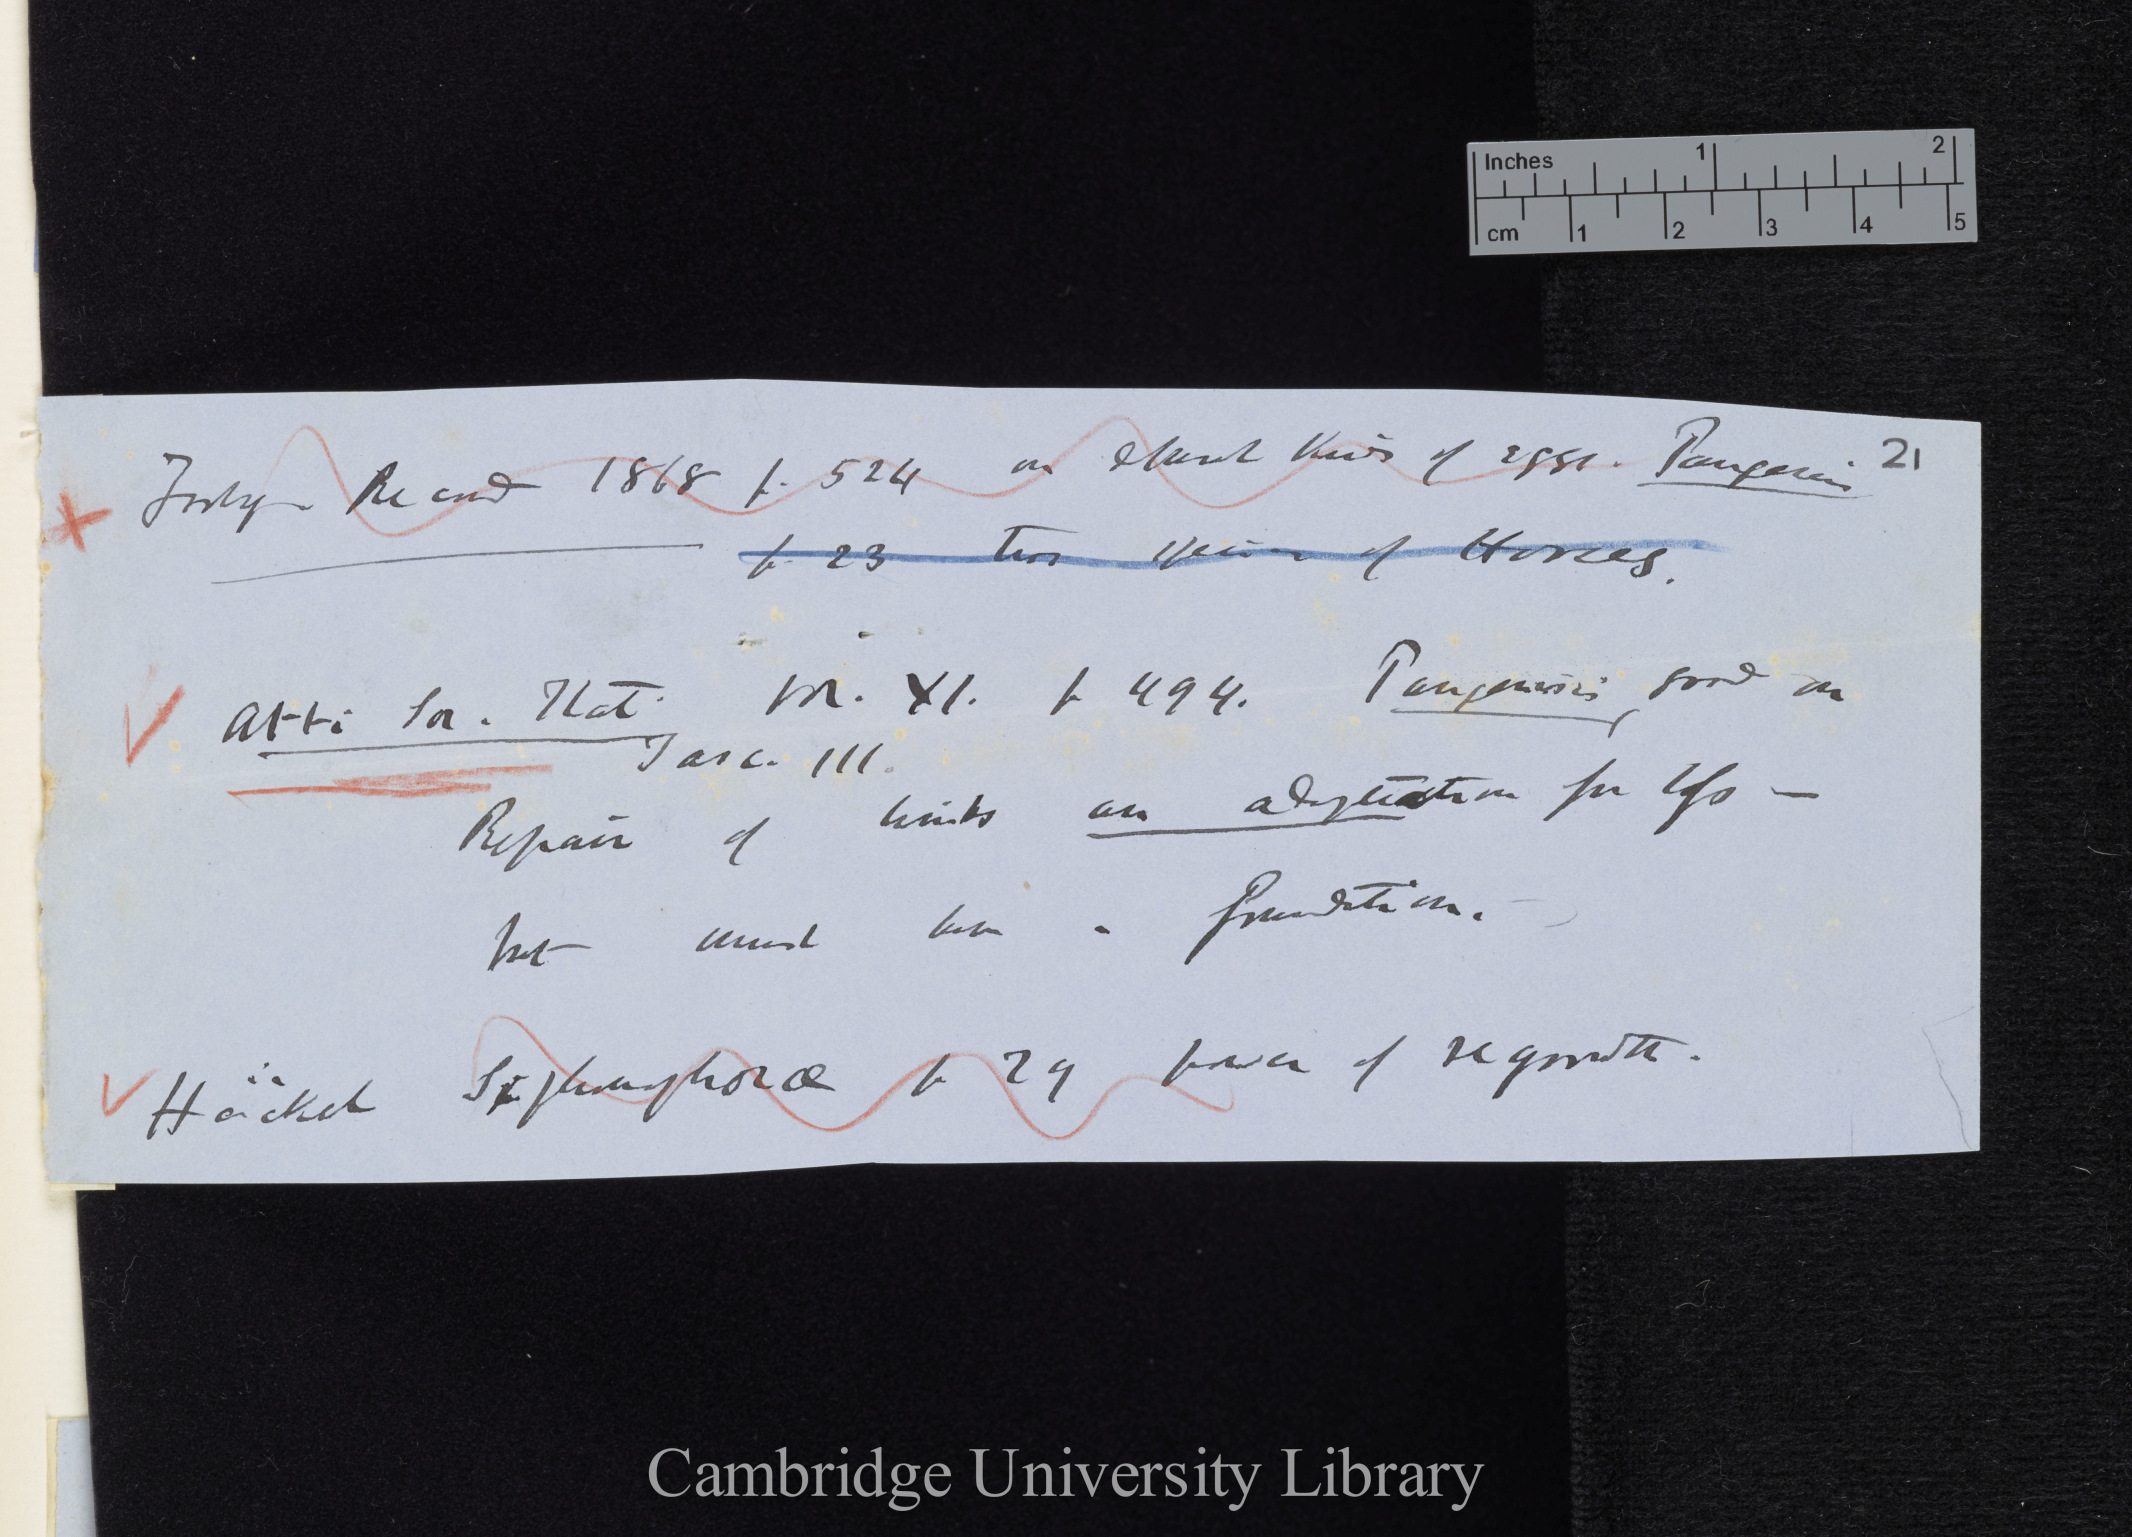 Inches 1 2
cm 1 2 3 4 5
21
Zoolog Record 1868 p. 524 on kinds of eggs. Pangenesis
p. 23 two species of Horses.
Atti Soc. Nat. Vol. XI. p 494. Pangenesis, good on
Fasc. III.
Repair of limbs an adaptation for life —
but must have a foundation.
Häckel Siphonophoræ p 29 power of regrowth.
Cambridge University Library